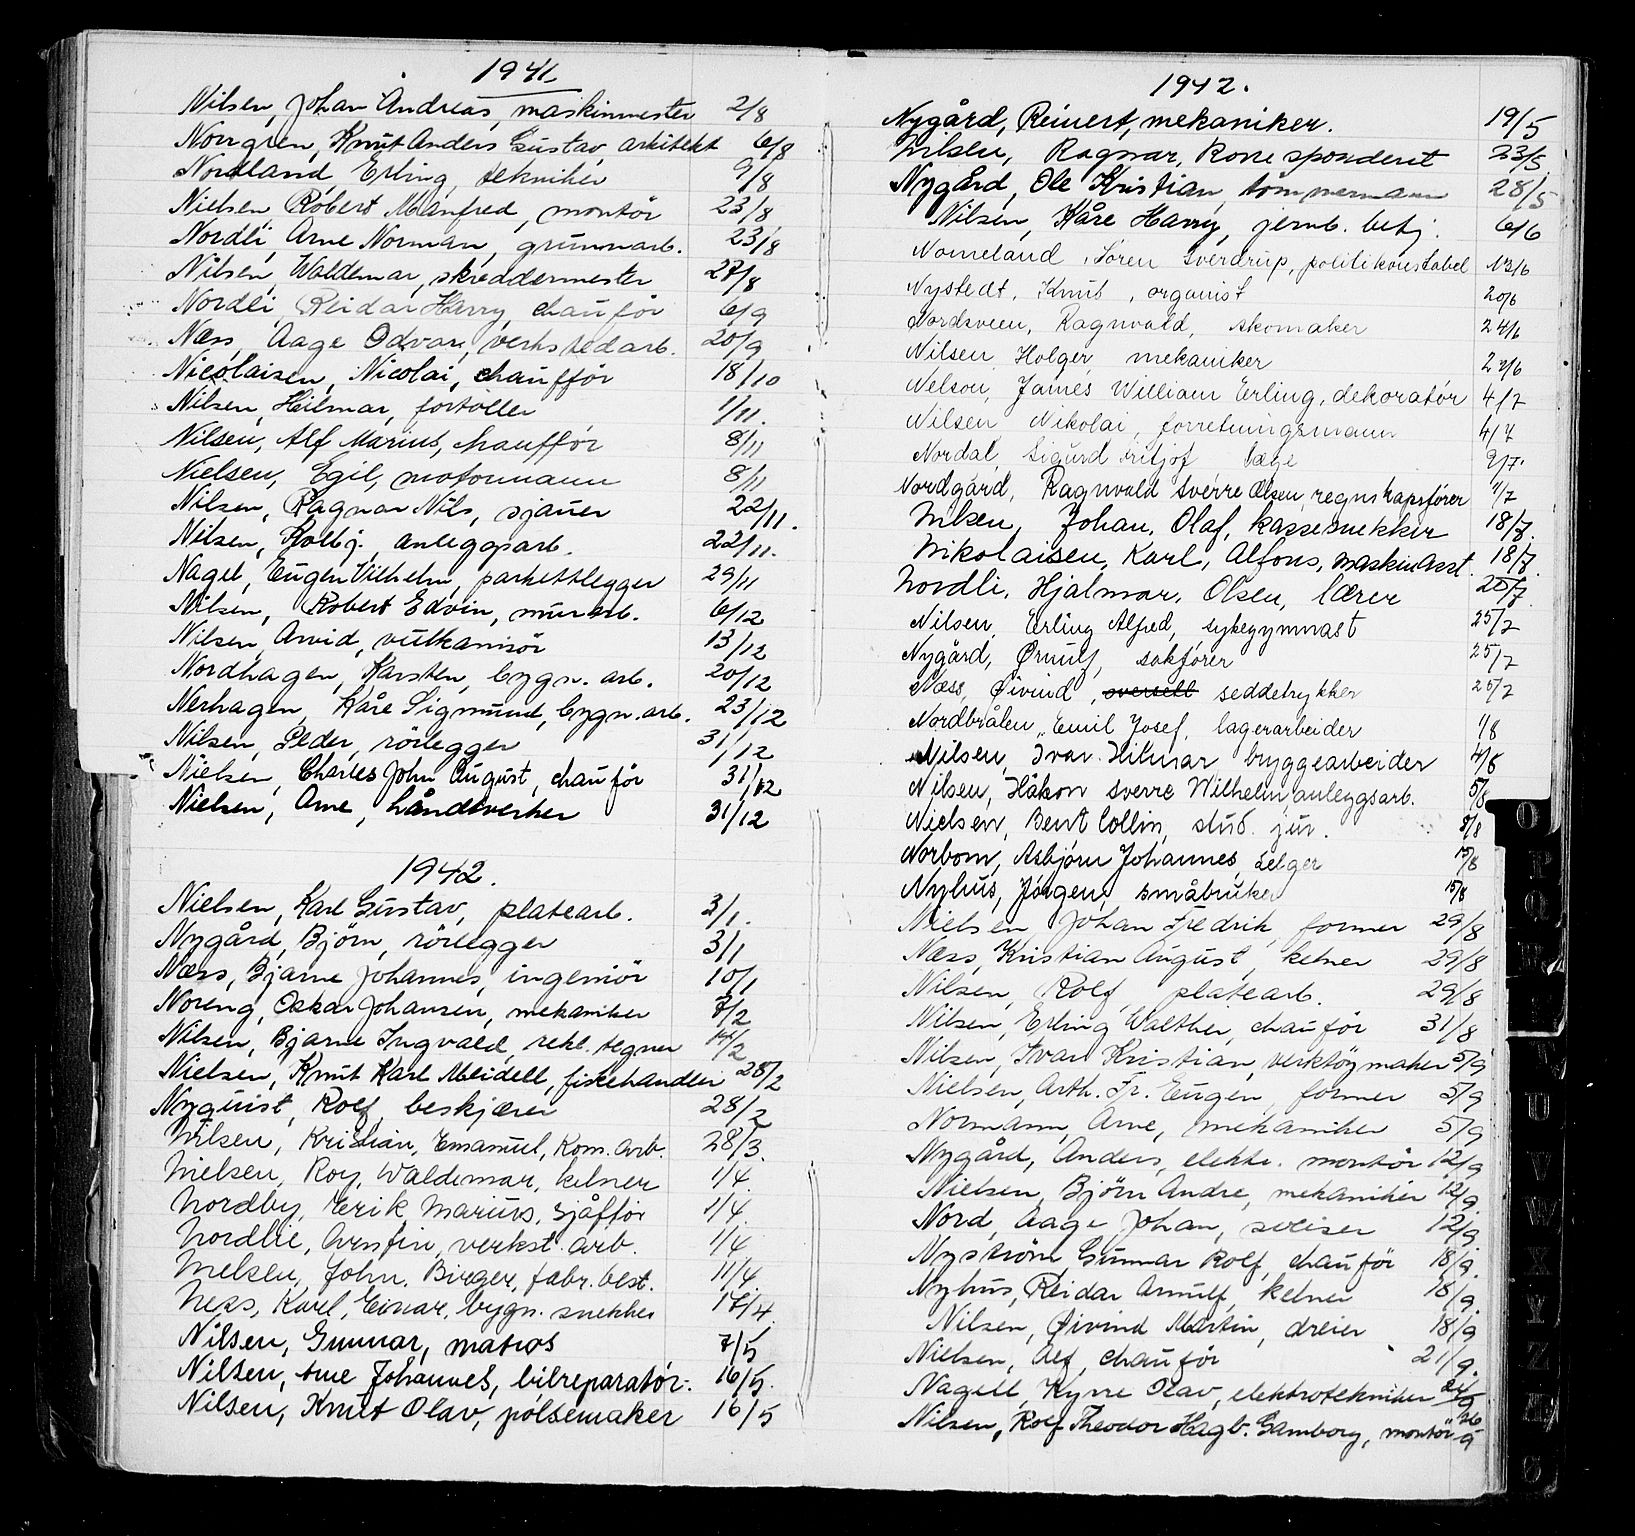 1941
Nilsen, Johan Andreas, maskinmester 2/8
Norrgren, Knut Anders Gustav, arkitekt 6/8
Nordland, Erling, tekniker 9/8
Nielsen, Robert Manfred, montör 23/8
Nordli, Arne Norman, grunnarb. 23/8
Nilsen, Waldemar, skreddermester 27/8
Nordli, Reidar Harry, chauför 6/9
Næss, Aage Odvar, verkstedarb. 20/9
Nicolaisen, Nicolai, chauffør 18/10
Nilsen, Hilmar, fortoller 1/11.
Nilsen, Alf Marius, chauffør 8/11
Nielsen, Egil, motormann 8/11
Nilsen, Ragnar Nils, sjauer 22/11.
Nilsen, Holbj. anleggsarb. 22/11.
Nagel, Eugen Vilhelm, parkettlegger 29/11
Nilsen, Robert Edvin, murarb. 6/12
Nilsen, Arvid, vulkanisör 13/12
Nordhagen, Karsten, bygn. arb. 20/12
Nerhagen, Kåre Sigmund, bygn. arb. 23/12
Nilsen, Peder, rörlegger 31/12
Nielsen, Charles John August, chauför 31/12
Nielsen, Arne, håndverker 31/12
1942.
Nielsen, Karl Gustav, platearb. 3/1.
Nygård, Björn, rörlegger 3/1
Næss, Bjarne Johannes, ingeniör 10/1
Noreng, Oskar Johansen, mekaniker 7/2
Nilsen, Bjarne Ingvald, rekl. tegner 14/2
Nielsen, Knut Karl Meidell, fiskehandler 28/2
Nyquist, Rolf, beskjærer 28/2
Nilsen, Kristian, Emanuel, Kom. arb. 28/3.
Nielsen, Roy, Waldemar, kelner 1/4.
Nordby, Erik Marius, sjåffør 1/4.
Nordlie, Arnfin, verkst. arb. 1/4
Nielsen, John, Birger, fabr. best. 11/4.
Ness, Karl, Einar, bygn. snekker 17/4.
Nilsen, Gunnar, matros 7/5
Nilsen, Arne Johannes, bilreparatör. 16/5.
Nilsen, Knut Olav, pölsemaker 16/5
1942.
Nygård, Reinert, mekaniker. 19/5
Nilsen, Ragnar, Korrespondent 23/5.
Nygård, Ole Kristian, tömmermann 28/5
Nilsen, Kåre Harry, jernb. betj. 6/6
Nomeland, Sören Sverdrup, politikonstabel 13/6
Nystedt, Knut, organist 20/6
Nordsveen, Ragnvald, skomaker 24/6
Nilsen, Holger, mekaniker 27/6
Nelson, James William Erling, dekoratør 4/7
Nilsen Nikolai, forretningsmann 4/7
Nordal, Sigurd Fritjof læge 9/7.
Nordgård, Ragnvald Sverre Olsen, regnskapsfører 11/7
Nilsen, Johan, Olaf, kassesnekker 18/7.
Nikolaisen, Karl, Alfons, maskinasst. 18/7.
Nordli, Hjalmar, Olsen, lærer 20/7.
Nilsen, Erling Alfred, sykegymnast 25/7
Nygård, Ørnulf, sakfører 25/7
Næss, Øivind, seddeltrykker 25/7
Nordbråten, Emil Josef, lagerarbeider 1/8
Nilsen, Ivar Hilmar bryggearbeider 4/8
Nilsen, Håkon Sverre Wilhelm, anleggsarb. 5/8
Nielsen, Bent Collin, stud. jur. 8/8
Norbom, Asbjørn Johannes, selger 15/8
Nyhus, Jørgen, småbruker 15/8
Nielsen Johan Fredrik, former 29/8
Næss, Kristian August, kelner 29/8
Nilsen, Rolf, platearb. 29/8
Nilsen, Erling Walther, chauför 31/8
Nilsen, Ivar Kristian, verktöymaker 5/9
Nielsen, Arth. Fr. Eugen, former 5/9
Normann, Arne, mekaniker 5/9
Nygård, Anders, elektr. montör 12/9
Nielsen, Björn Andre, mekaniker 12/9.
Nord, Aage Johan, sveiser 12/9
Nyström, Gunnar Rolf, chauför 18/9.
Nyhus, Reidar Arnulf, kelner 18/9.
Nilsen, Øivind Martin, dreier 18/9
Nielsen, Alf, chauför 21/9.
Nagell, Kyrre Olav, elektrotekniker 24/9
Nilsen, Rolf Theodor Hagb. Gamborg, montör 26/9
O
P
Q
U
V
W
X
Y
Z